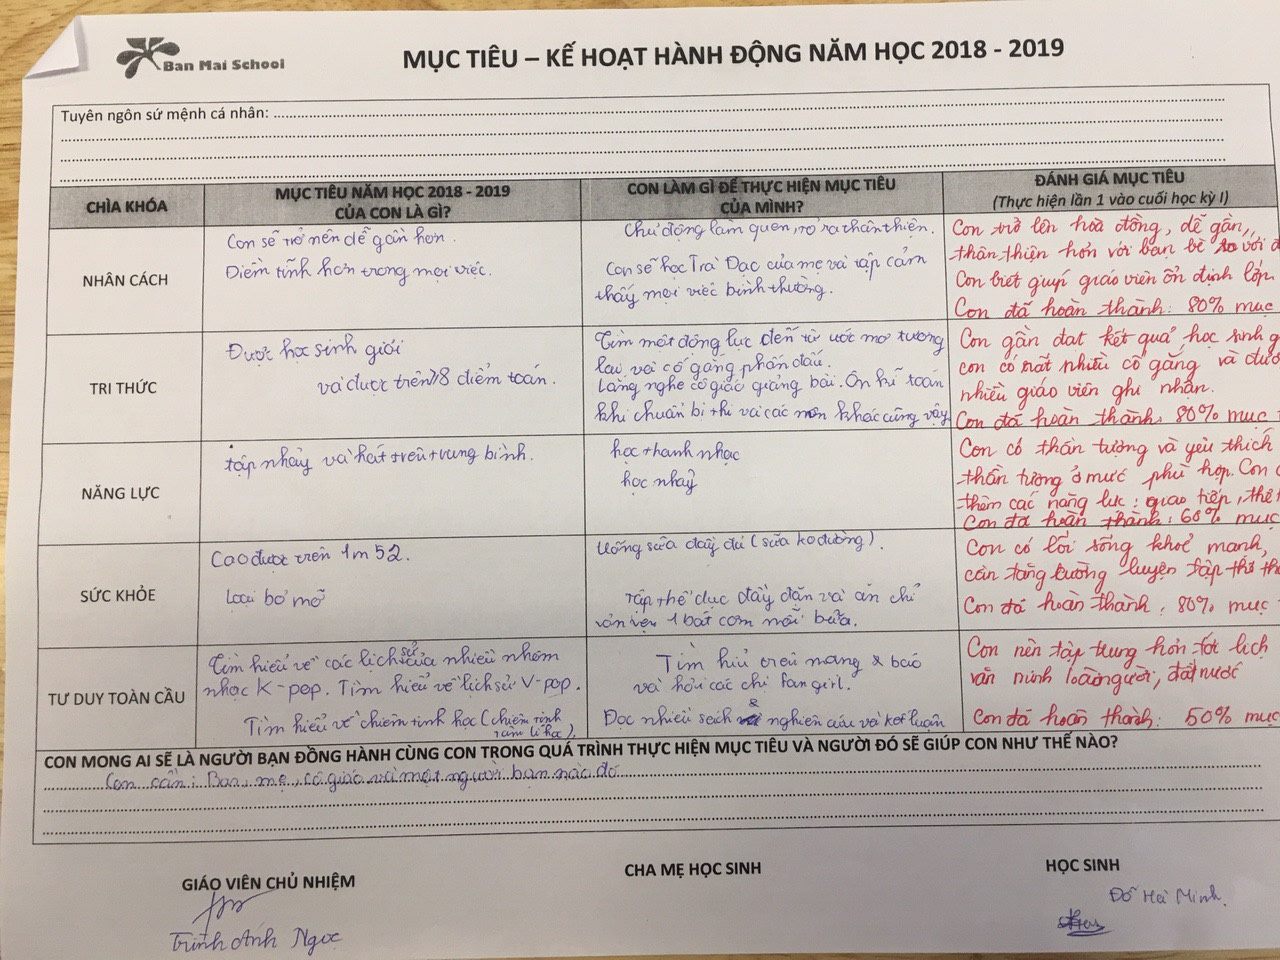 Ban Mai School
MỤC TIÊU – KẾ HOẠT HÀNH ĐỘNG NĂM HỌC 2018 - 2019
Tuyên ngôn sứ mệnh cá nhân:
CHÌA KHÓA
MỤC TIÊU NĂM HỌC 2018 - 2019
CỦA CON LÀ GÌ?
CON LÀM GÌ ĐỂ THỰC HIỆN MỤC TIÊU
CỦA MÌNH?
ĐÁNH GIÁ MỤC TIÊU
(Thực hiện lần 1 vào cuối học kỳ I)
NHÂN CÁCH
Con sẽ trở nên dễ gần hơn.
Điềm tĩnh hơn trong mọi việc.
Chủ động làm quen, tỏ ra thân thiện.
Con sẽ học Trà Đạo của mẹ và tập cảm
thấy mọi việc bình thường.
Con trở lên hoà đồng, dễ gần,
thân thiện hơn với bạn bè với
Con biết giúp giáo viên ổn định lớp.
Con đã hoàn thành: 80% mục
TRI THỨC
Được học sinh giỏi
và được trên 8 điểm toán.
Tìm một động lực đến từ ước mơ tương
lai và cố gắng phấn đấu.
Lắng nghe cô giáo giảng bài. Ôn kĩ toán
khi chuẩn bị thi và các môn khác cũng vậy
Con gần đạt kết quả học sinh
con có rất nhiều cố gắng và
nhiều giáo viên ghi nhận.
Con đã hoàn thành 80% mục
NĂNG LỰC
tập nhảy và hát trên trung bình.
học thanh nhạc
học nhảy
Con có thần tượng và yêu thích
thần tượng ở mức phù hợp. Con
thêm các năng lực: giao tiếp, thể
Con đã hoàn thành: 60% mục
SỨC KHỎE
Cao được trên 1m52.
Loại bỏ mỡ
Uống sữa đầy đủ (sữa ko đường).
Tập thể dục đầy đặn và ăn chỉ
vỏn vẹn 1 bát cơm mỗi bữa.
Con có lối sống khoẻ mạnh,
cần tăng cường luyện tập thể
Con đã hoàn thành: 80% mục
TƯ DUY TOÀN CẦU
Tìm hiểu về các lịch sử của nhiều nhóm
nhạc K-pop. Tìm hiểu về lịch sử V-pop.
Tìm hiểu về chiêm tinh học (chiêm tinh
tâm lí học).
Tìm hiểu trên mạng & báo
và hỏi các chị fangirl.
Đọc nhiều sách & nghiên cứu và kết luận
Con nên tập trung hơn tới lịch
văn minh loài người, đất nước
Con đã hoàn thành: 50% mục
CON MONG AI SẼ LÀ NGƯỜI BẠN ĐỒNG HÀNH CÙNG CON TRONG QUÁ TRÌNH THỰC HIỆN MỤC TIÊU VÀ NGƯỜI ĐÓ SẼ GIÚP CON NHƯ THẾ NÀO?
Con cần: mẹ, cô giáo và một người bạn nào đó
GIÁO VIÊN CHỦ NHIỆM
CHA MẸ HỌC SINH
HỌC SINH
Trịnh Anh Ngọc
Đỗ Hà Minh.